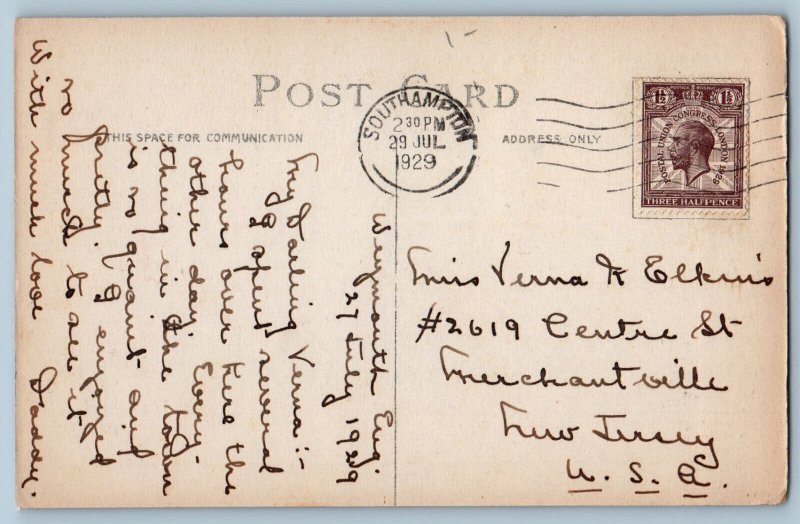 POST CARD
THIS SPACE FOR COMMUNICATION
ADDRESS ONLY
SOUTHAMPTON
2 30 PM
29 JUL
1929
1½ 1½
POSTAL UNION CONGRESS LONDON 1929
THREE HALFPENCE
Weymouth Eng.
27 July 1929
My Darling Verna:-
I spent several
hours over here the
other day. Every-
thing in the town
is so quaint and
pretty. I enjoyed
so much to see it
With much love Daddy.
Miss Verna K Elkins
#2619 Centre St
Merchantville
New Jersey
U. S. A.